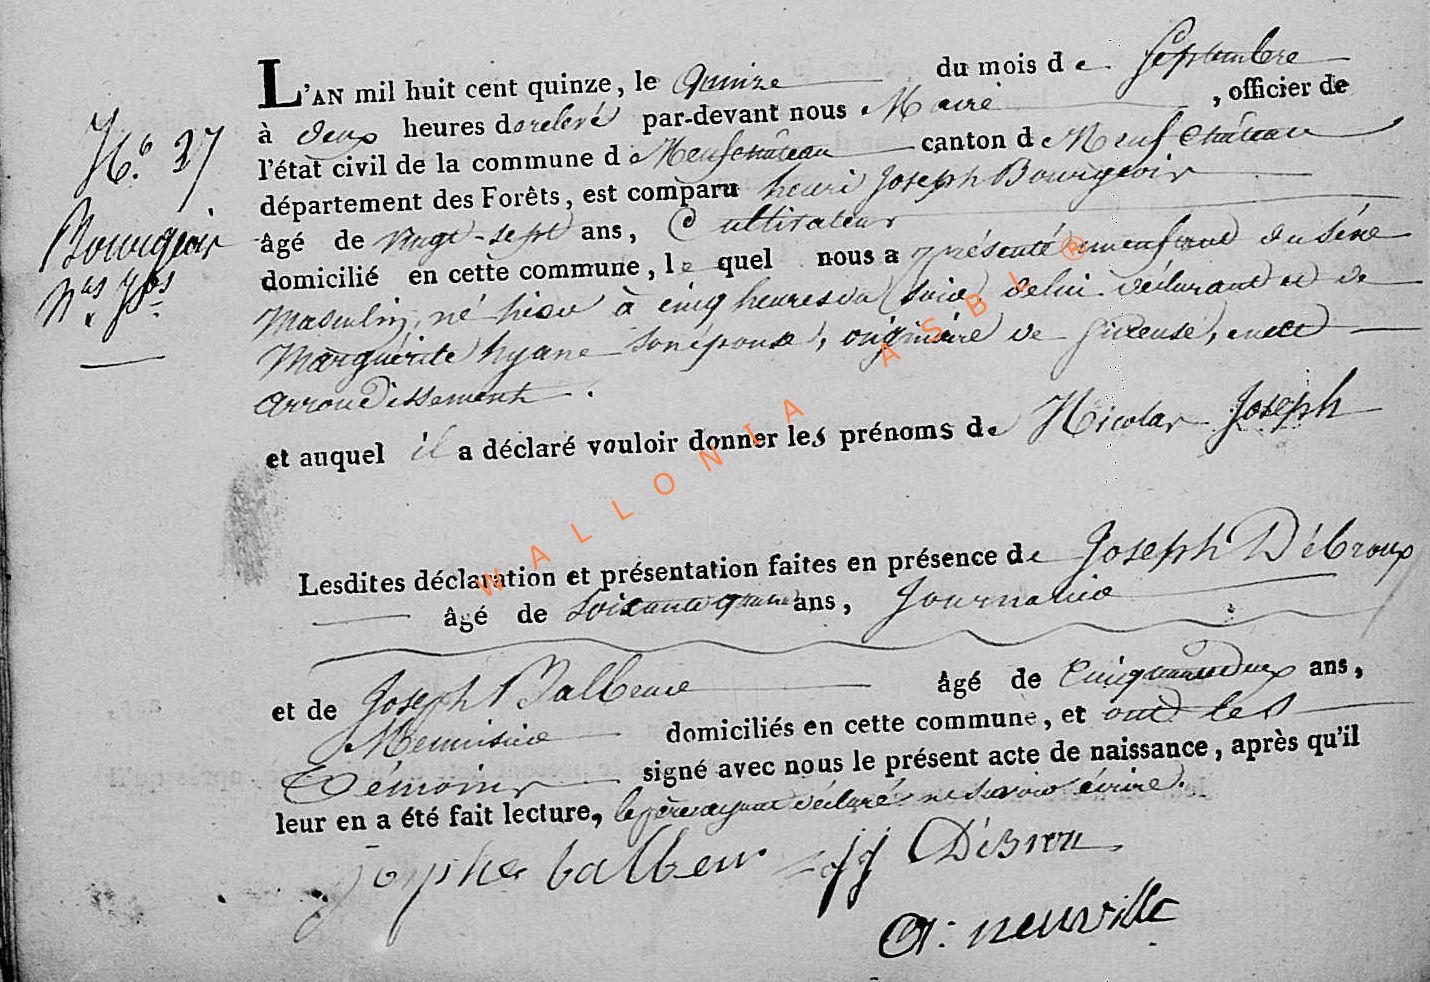 N.° 37
Bourgeois
N.as J.ph
L'AN mil huit cent quinze, le quinze du mois de Septembre
à deux heures de relevé par-devant nous Maire, officier de
l'état civil de la commune de Neufchâteau canton de Neufchâteau
département des Forêts, est comparu henri Joseph Bourgeois
âgé de vingt-sept ans, Cultivateur
domicilié en cette commune, le quel nous a présenté un enfant du séxe
Masculin, né hier à cinq heures du soir, de lui déclarant et de
Marguérite hyane son épouse, originaire de, en cet
arrondissement.
et auquel il a déclaré vouloir donner les prénoms de Nicolas Joseph
Lesdites déclaration et présentation faites en présence de Joseph Débroux
âgé de soixante quatre ans, Journalier
et de Joseph Balbeur âgé de Cinquante deux ans,
Menuisier domiciliés en cette commune, et ont les
témoins signé avec nous le présent acte de naissance, après qu'il
leur en a été fait lecture, le père ayant déclaré ne savoir écrire.
joseph balbeur jj Débrou
A: neuville
WALLONIA ASBL ®